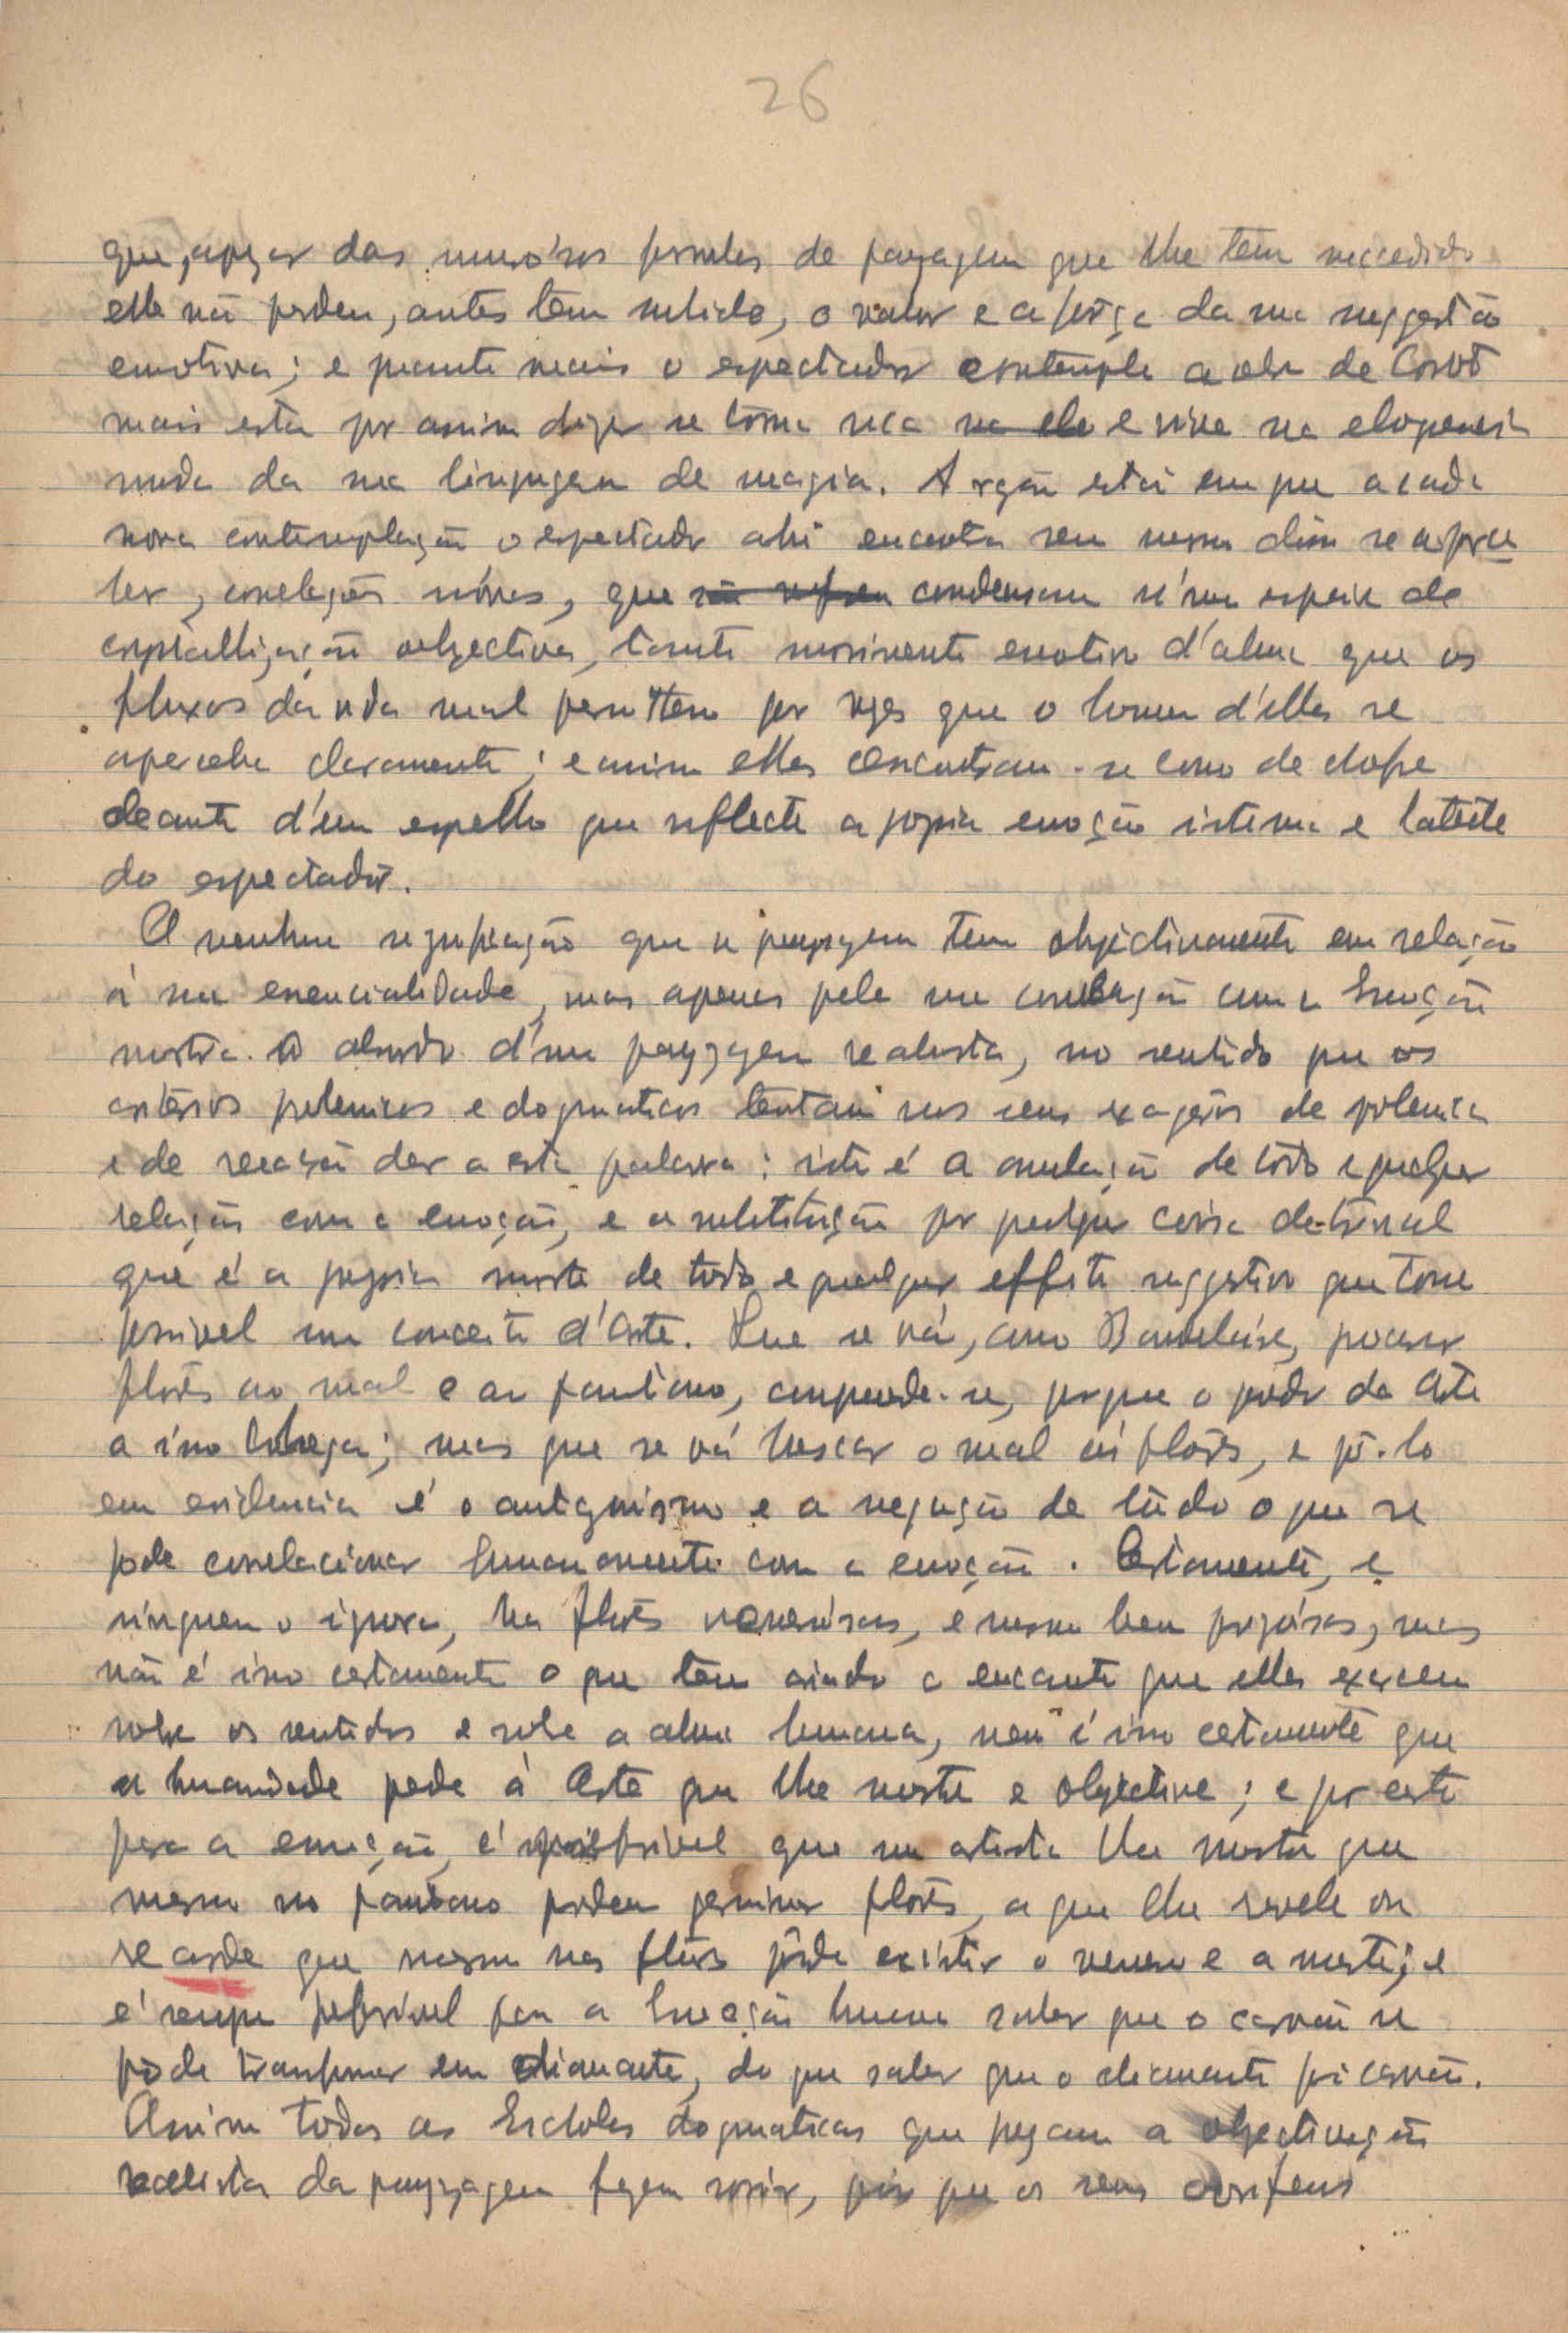 26
que, apezar das numerósas formulas de payzagem que lhe têm succedido
ella não perdeu, antes tem subido, o valor e a fôrça da sua suggestão
emotiva; e quanto mais o espectador contempla a obra de Corot
mais esta por assim dizer se torna rica na ella e vive na eloquencia
muda da sua linguagem de magia. A razão está em que a cada
nova contemplação o espectador ahi encontra sem mesmo d'isso se aperce
ber, correlações nóvas, que condensam n'uma especie de
crystallização objectiva, tanto movimento emotivo d'alma que os
fluxos da vida mal permittem por vezes que o homem d'elles se
aperceba claramente; e assim elles encontram-se como de chofre
deante d'um espelho que reflecte a propria emoção interna e latente
do espectador.
A nenhuma significação que a payzagem tem objectivamente em relação
á sua essencialidade, mas apenas pela sua correlação com a Emoção
mostra o absurdo d'uma payzagem realista, no sentido que os
criterios polemicos e dogmaticos tentam nos seus exageros de polemica
e de reacção dar a esta palavra: isto é a anulação de toda e qualquer
relação com a emoção, e a substituição por qualquer coisa de trivial
que é a propria morte de todo e qualquer effeito suggestivo que torne
possivel um conceito d'Arte. Que se vá, como Baudelaire, procurar
flôres ao mal e ao pantano, comprehende-se, porque o poder da Arte
a isso chega; mas que se vá buscar o mal ás flôres, e pô-lo
em evidencia é o antagonismo e a negação de tudo o que se
pode correlacionar humanamente com a emoção. Certamente, e
ninguem o ignora, ha flôres venenósas, e mesmo bem perigósas, mas
não é isso certamente o que tem ainda o encanto que ellas exercem
sobre os sentidos e sobre a alma humana, nem é isso certamente que
a humanidade pede á Arte que lhe mostre e objective; e por certo
para a emoção, é preferivel que um artista lhe mostre que
mesmo no pantano podem germinar flôres, a que lhe revele ou
recorde que mesmo nas flôres póde existir o veneno e a morte; e
é sempre preferivel para a Emoção humana saber que o carvão se
póde transformar em diamante, do que saber que o diamante foi carvão.
Assim todas as Escholas dogmaticas que pregam a objectivação
realista da payzagem fazem sorrir, por que os seus corifeus